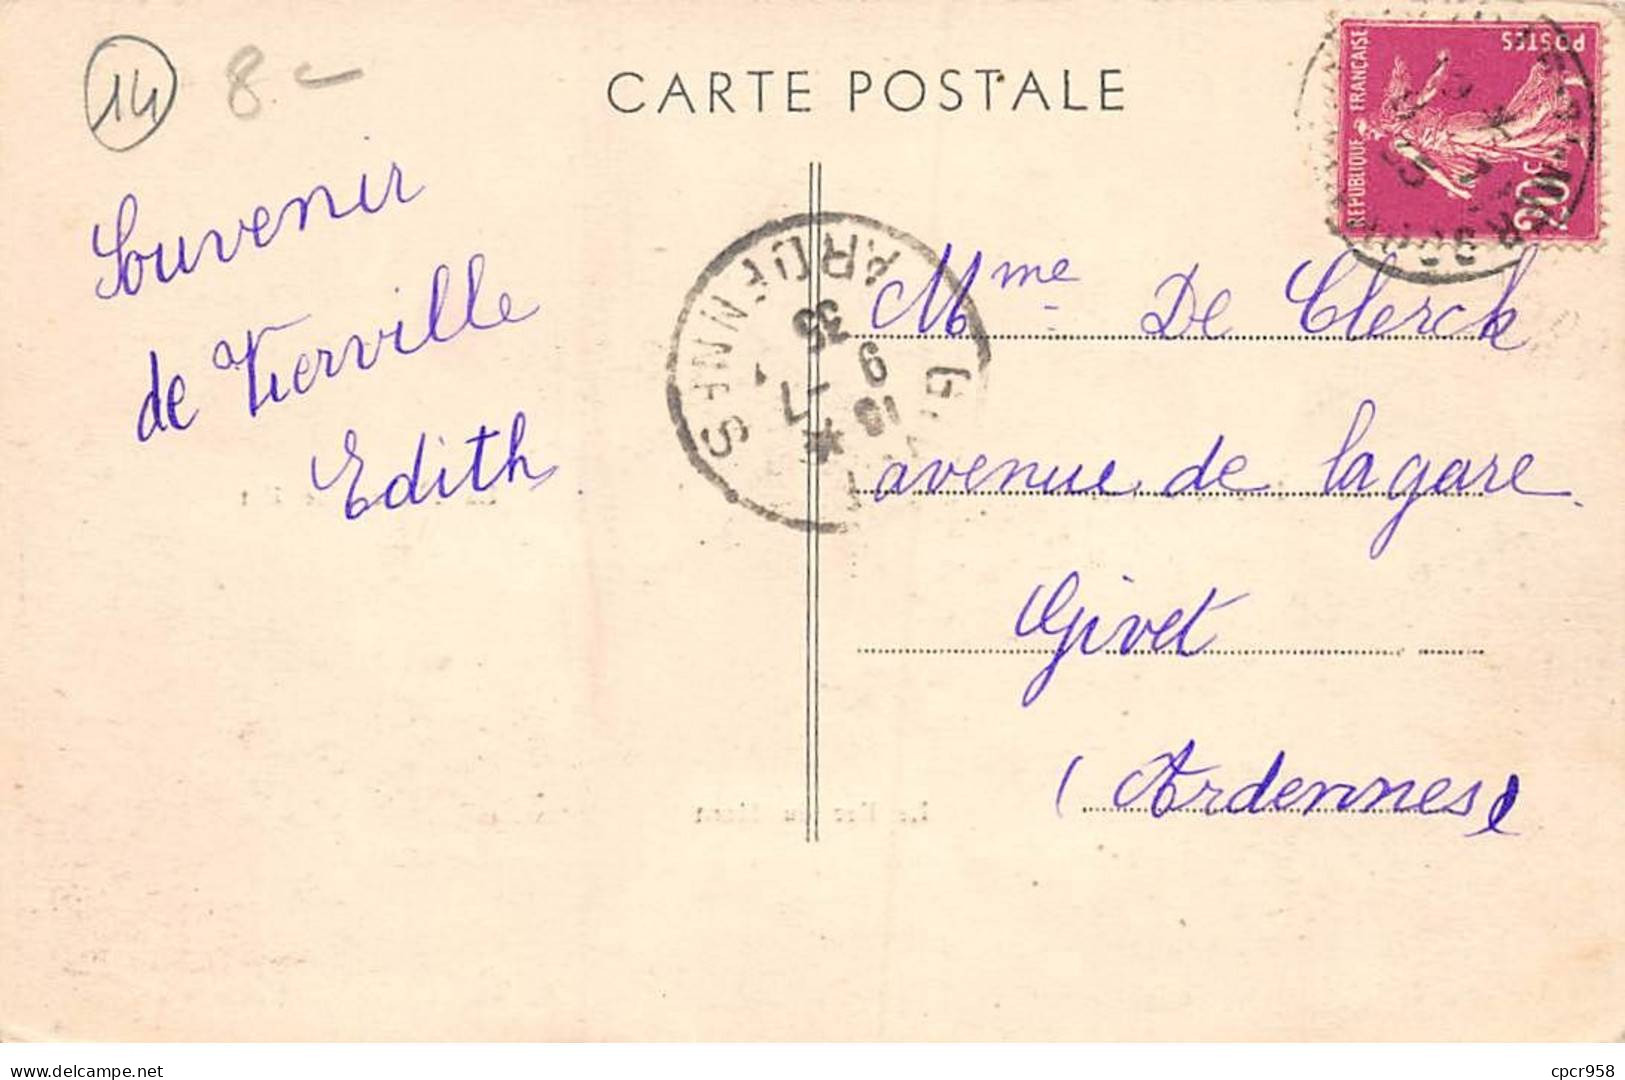 14
8 -
CARTE POSTALE
RÉPUBLIQUE FRANÇAISE
POSTES
20c
Souvenir
de Vierville
Edith
GIVET
ARDENNES
18
9 - 7
35
Mme De Clerck
avenue de la gare
Givet
(Ardennes)
cpcr958